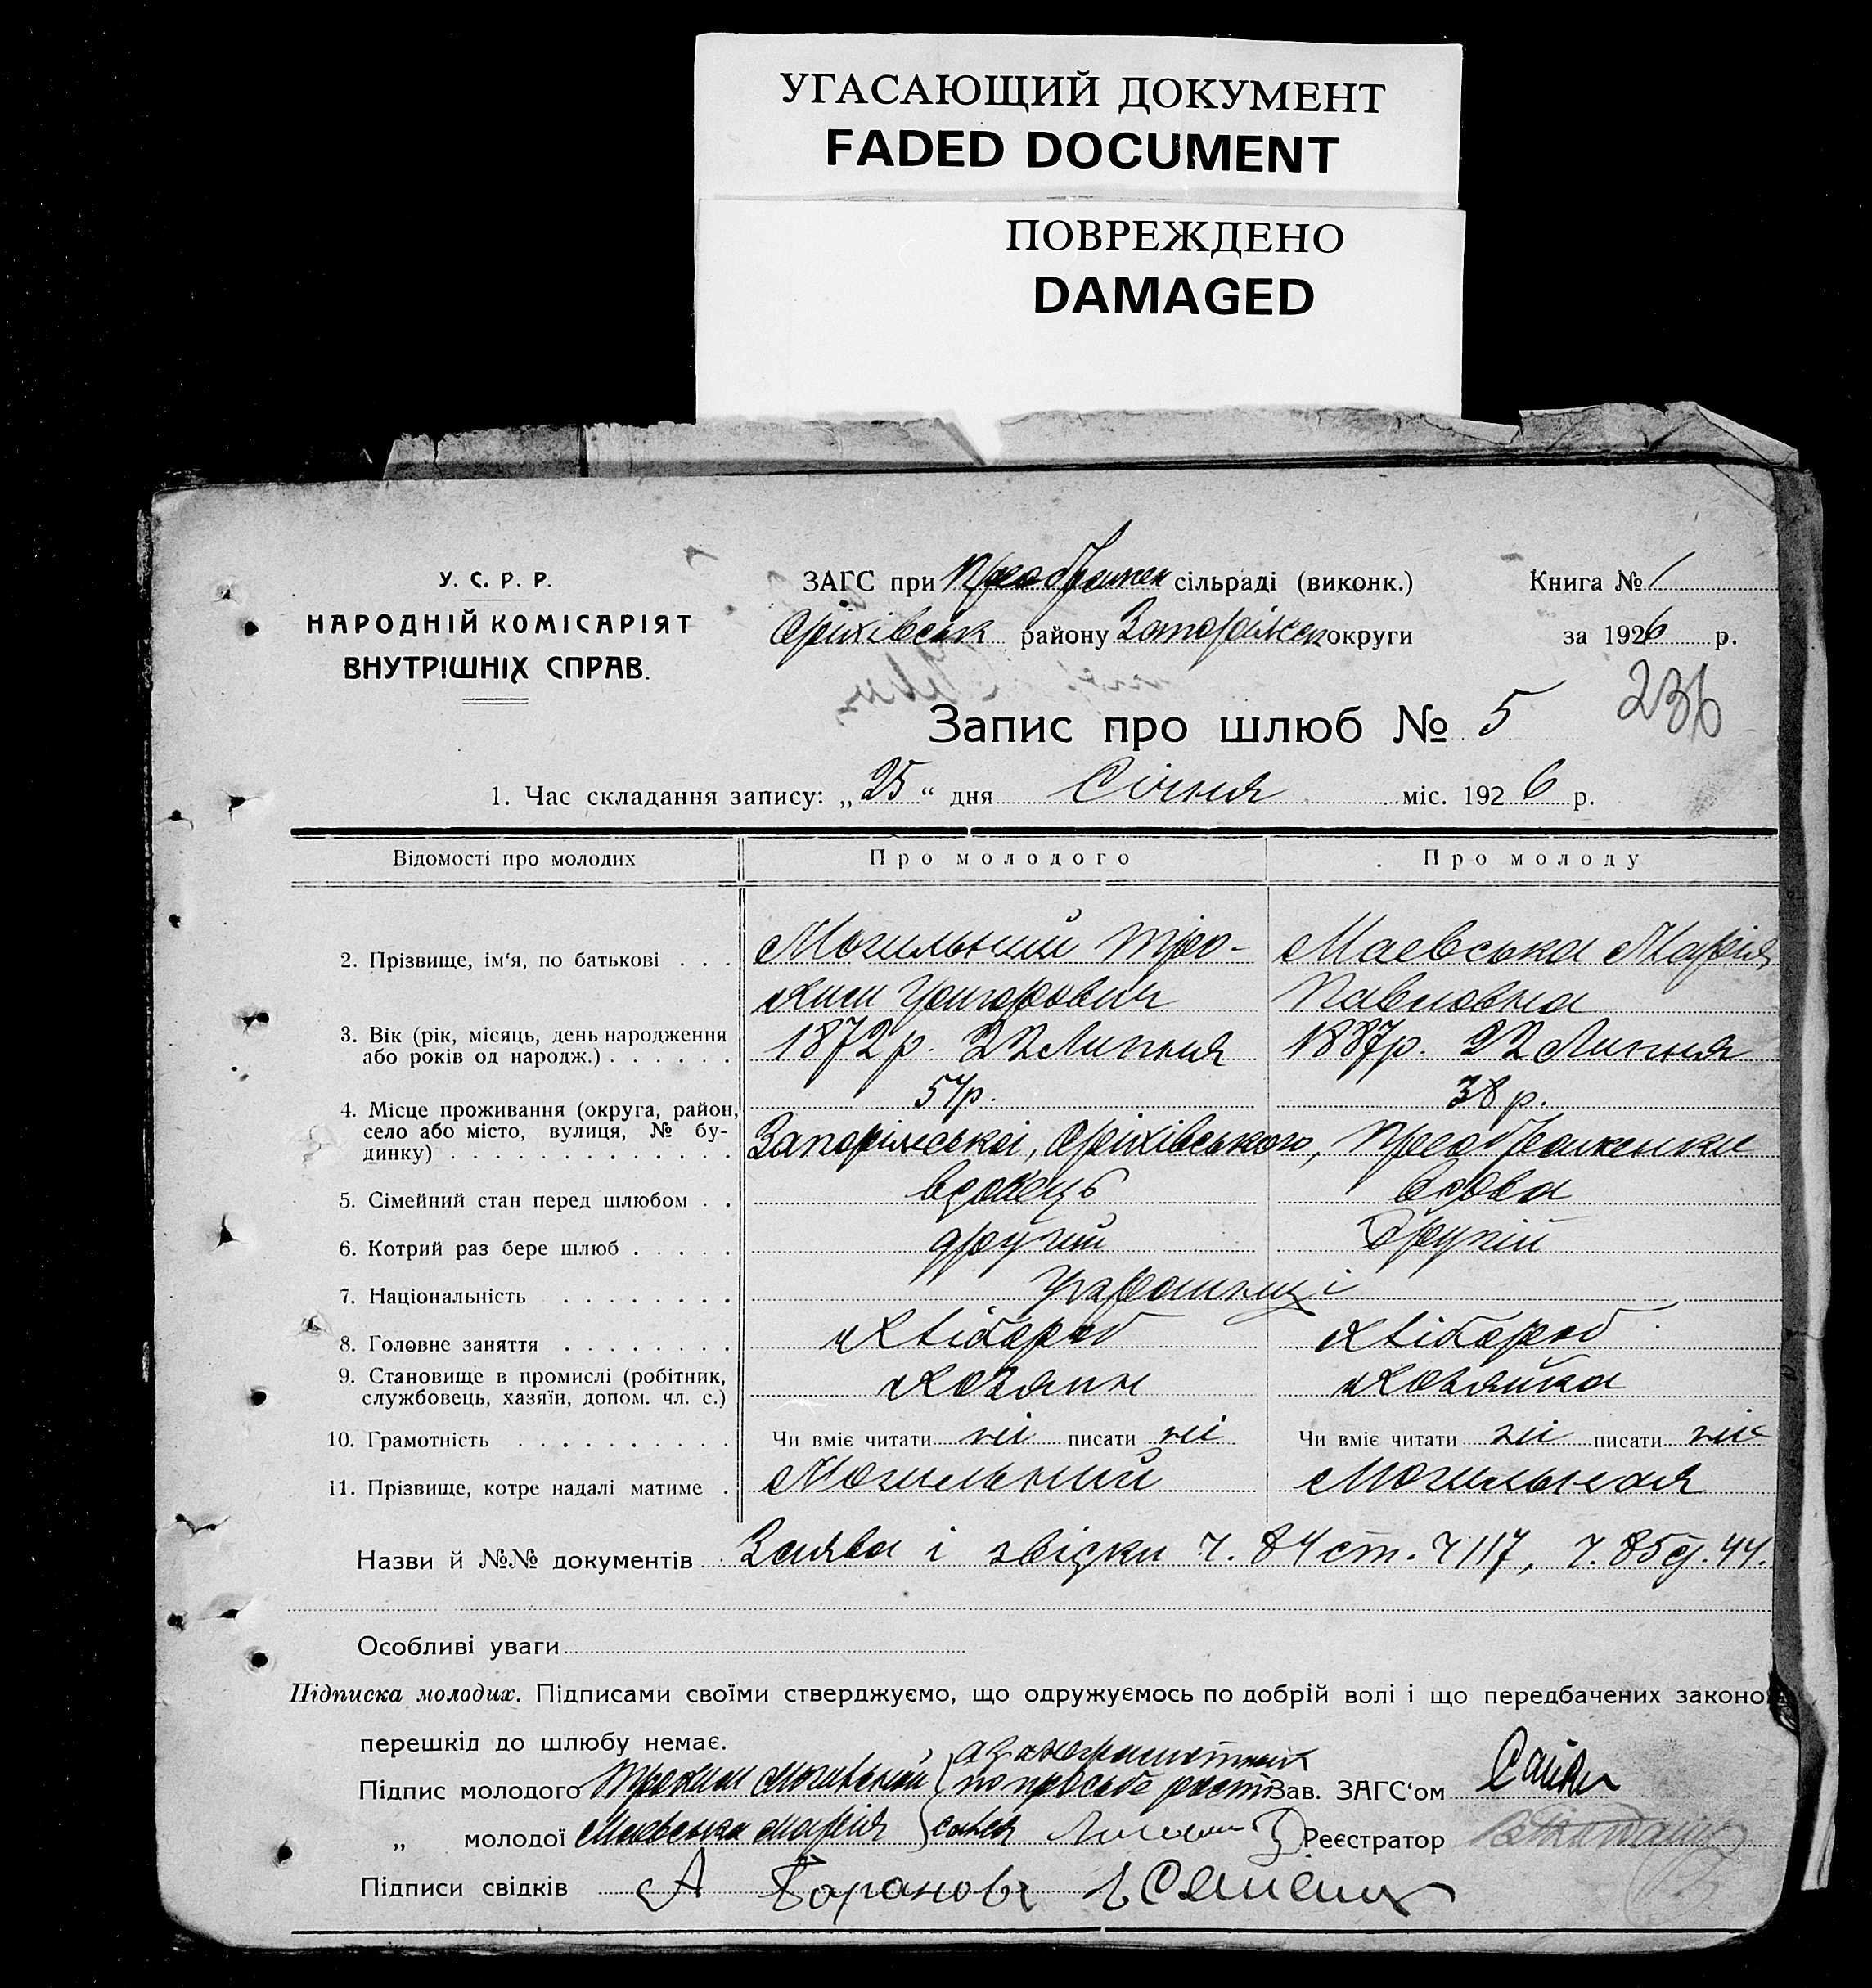 УГАСАЮЩИЙ ДОКУМЕНТ
FADED DOCUMENT
ПОВРЕЖДЕНО
DAMAGED
У. С. Р. Р.
НАРОДНІЙ КОМІСАРІЯТ
ВНУТРІШНІХ СПРАВ.
ЗАГС при Преображен сільраді (виконк.)
Оріхівськ району Запоріжск округи
Книга № 1
за 1926 р.
236
Запис про шлюб № 5
1. Час складання запису: „25“ дня Січня міс. 1926 р.
Відомості про молодих Про молодого Про молоду
2. Прізвище, ім‘я, по батькові . . . Могильний Тро- Маевська Марія
хим Григорович Павловна
3. Вік (рік, місяць, день народження 1872 р. 22 Липня 1887р. 22 Липня
або років од народж.) . . . . . .
54р. 38 р.
4. Місце проживання (округа, район,
село або місто, вулиця, № бу- Запоріжської, Оріхівського, Преображенки
динку) . . . . . . . . . . . . .
5. Сімейний стан перед шлюбом . . вдовець вдова
6. Котрий раз бере шлюб . . . . . другий Другій
7. Національність . . . . . . . . Українці
8. Головне заняття . . . . . . . . Хлібороб Хлібороб
9. Становище в промислі (робітник, Хозяин Хозяйка
службовець, хазяїн, допом. чл. с.)
10. Грамотність . . . . . . . . . . Чи вміє читати ні писати ні Чи вміє читати ні писати ні
11. Прізвище, котре надалі матиме . Могильний Могильная
Назви й №№ документів Заява і звідки ч. 84 ст. ч 117, ч. 85 ст. 44.
Особливі уваги
Підписка молодих. Підписами своїми стверджуємо, що одружуємось по добрій волі і що передбачених законо
перешкід до шлюбу немає.
Підпис молодого Трохим Могильний а за неграмотних по просьбе расти Зав. ЗАГС‘ом
„ молодої Маевська Марія сався Реєстратор
Підписи свідків А Баранов